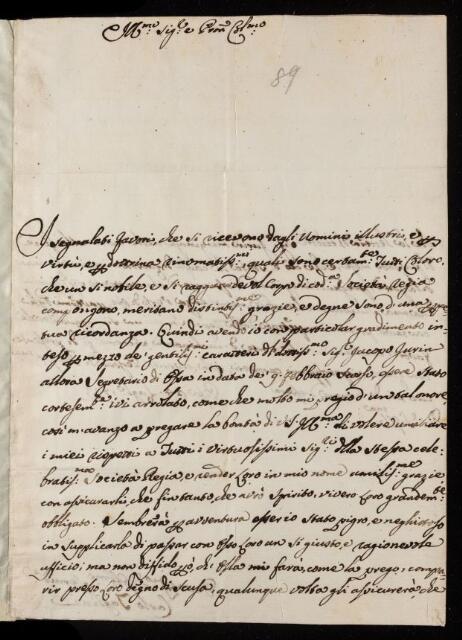 Ill.mo Sig.r e Pron. Col.mo
89
I segnalati favori, che si ricevono dagli Uomini illustri, e p
virtù, e p dottrina rinomatissimi, quali sono certam.te Tutti Coloro,
che un si nobile, e si ragguardevol Corpo di cod.a Società Regia
compongono, meritano distintiss.me grazie, e degne sono di una
tua ricordanza. Quindi avendo io con particolar gradimento in-
teso p mezzo de' gentiliss.mi caratteri del Sig.r Jacopo Jurin
allora Segretario di Essa in data de' 9. Febbraio scorso, essere stato
cortesem.te ivi arrolato, come che molto mi pregio d'un tal onore,
così m'avanzo a pregare la bontà di V.S. Ill.ma di volere umiliare
i miei rispetti a Tutti i Virtuosissimi Sig.ri della Stessa cele-
bratiss.ma Società Regia, e render Loro in mio nome umiliss.me grazie
con assicurarli, che fin tanto, che avrò Spirito, vivero Loro grandem.te
obbligato. Sembrerà p avventura esser io stato pigro, e neghittoso
in supplicarla di passar con Esso Loro un sì giusto, e ragionevole
ufficio, ma non diffido p, ch'Ella mi farà, come la prego, compa-
rir presso Loro degno di scusa, qualunque volta gli assicurerà, che